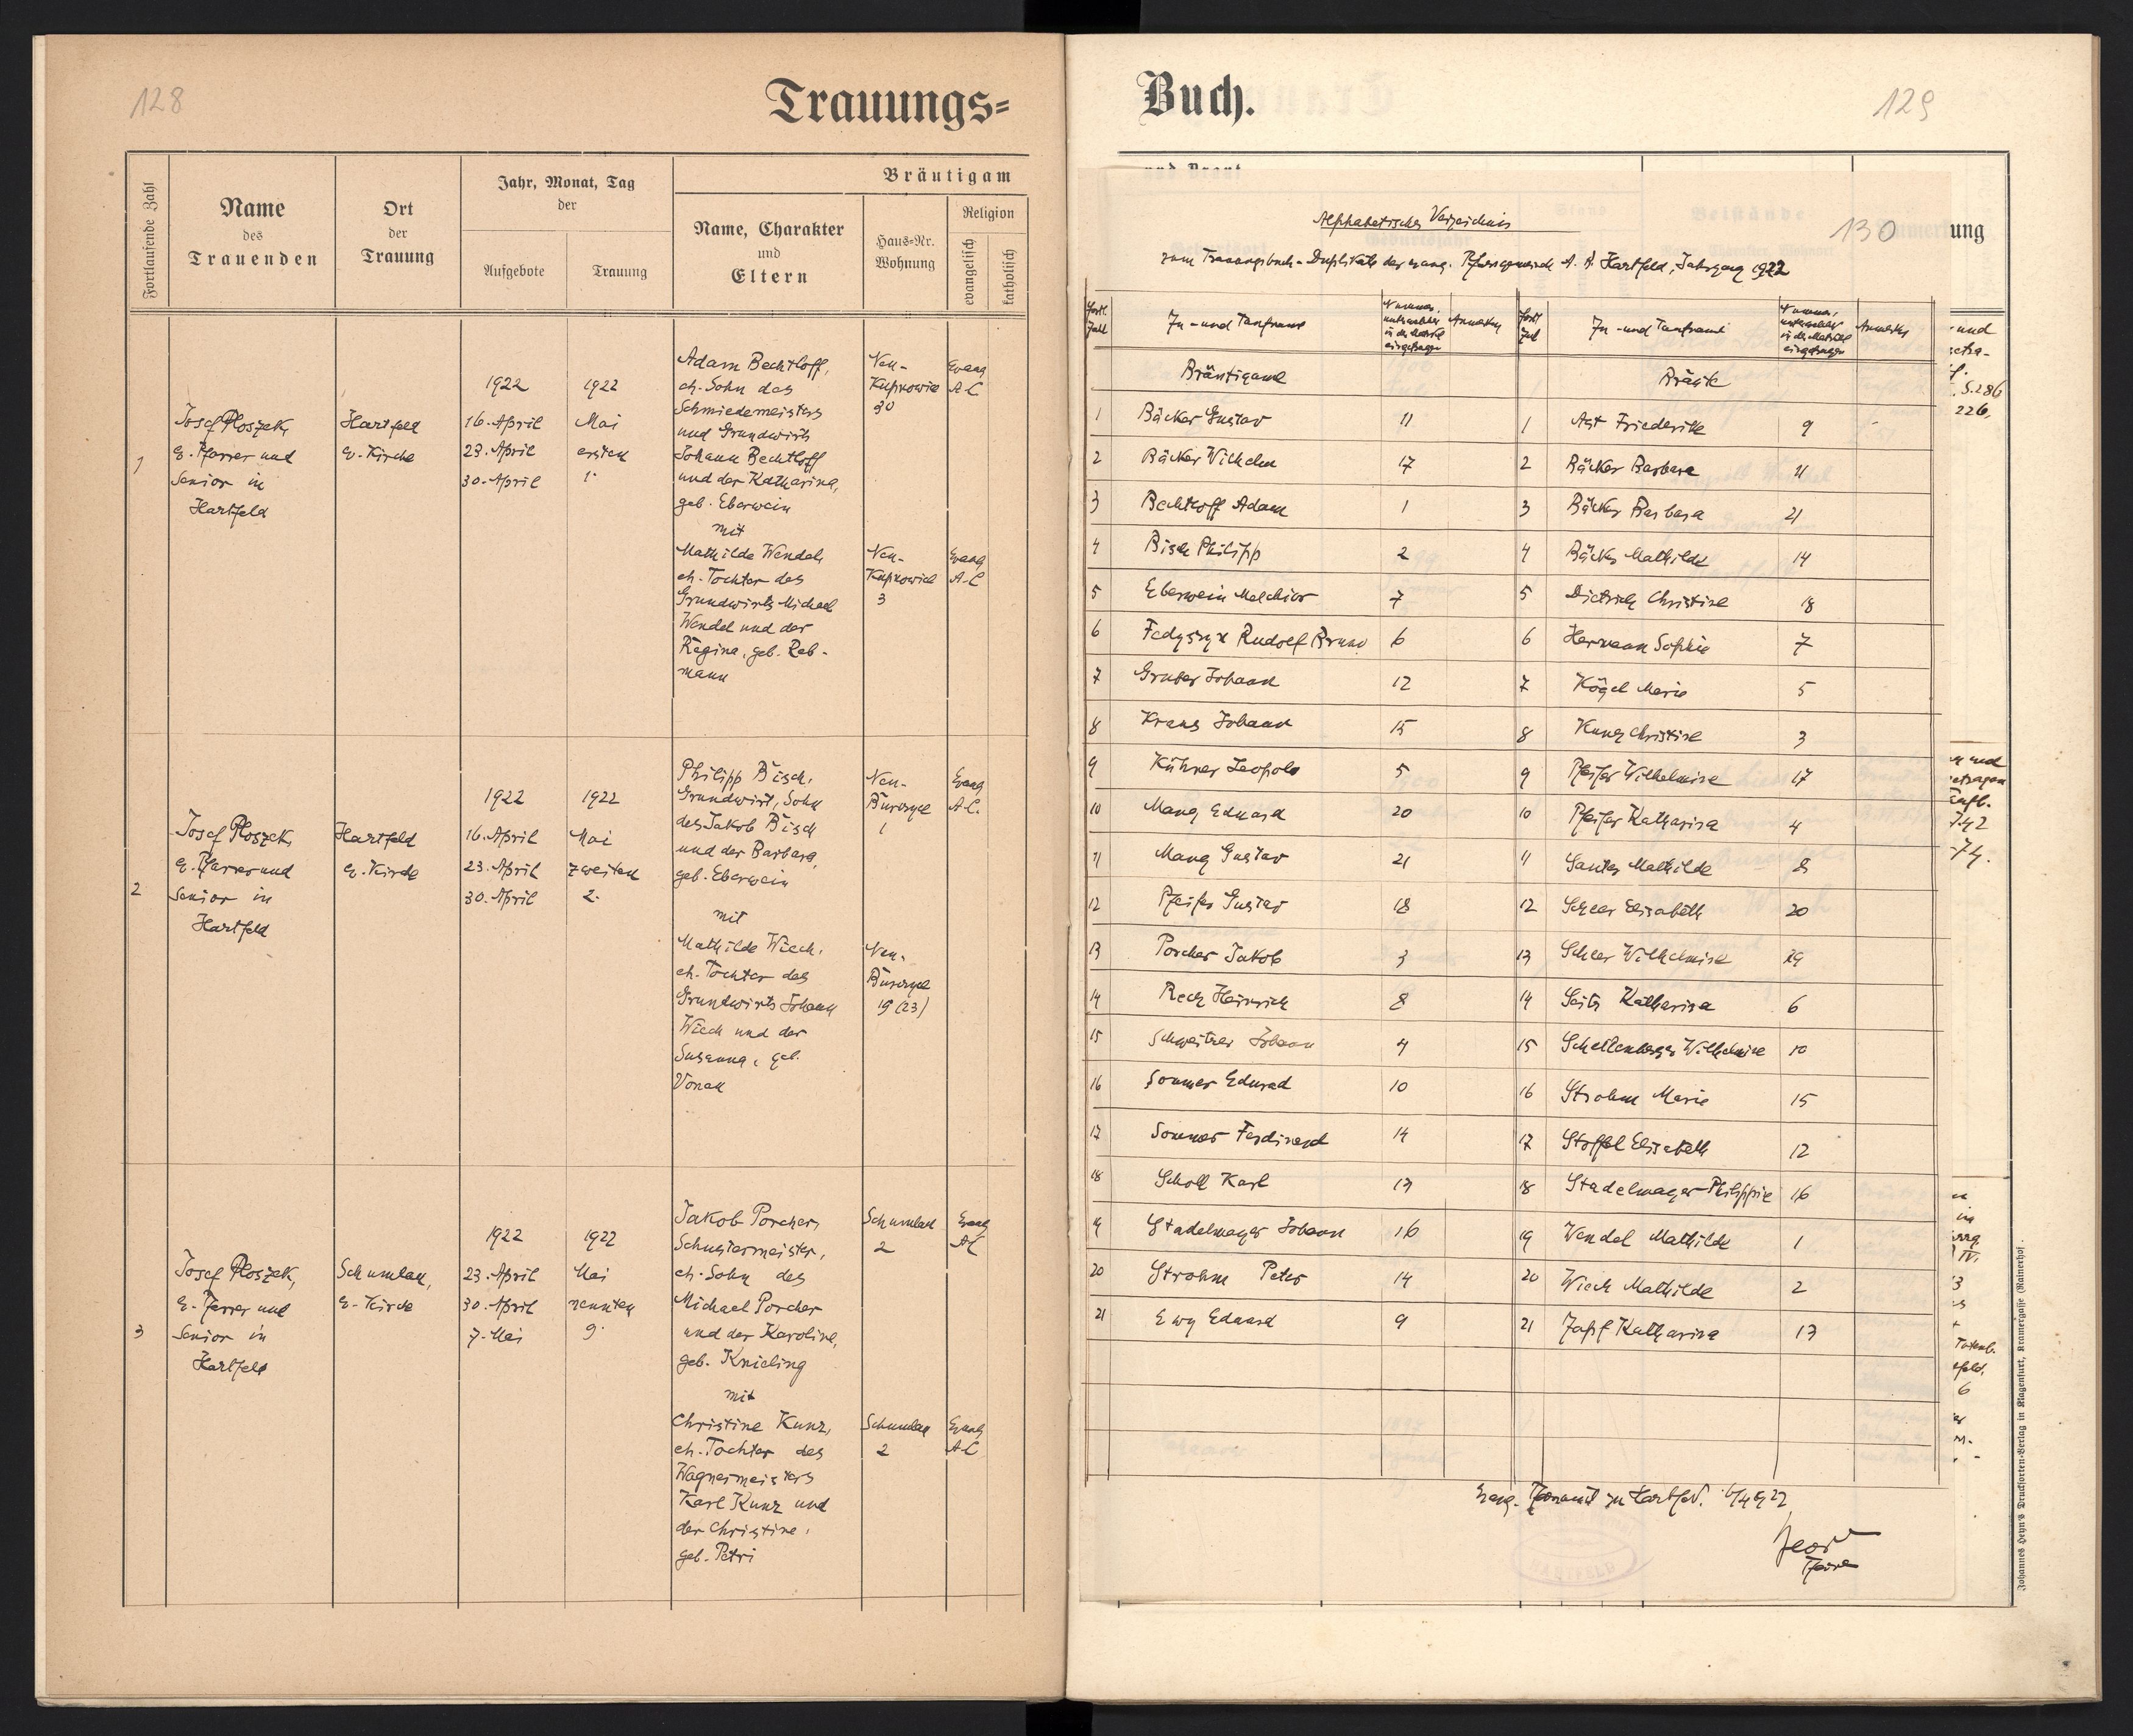 128
Trauungs=
Fortlaufende Zahl
Name
des
Trauenden
Ort
der
Trauung
Jahr, Monat, Tag
der
Aufgebote
Trauung
Bräutigam
Name, Charakter
und
Eltern
Haus-Nr.
Wohnung
Religion
evangelisch
katholisch
1
Josef Ploszek,
e. Pfarrer und
Senior in
Hartfeld
Hartfeld
ev. Kirche
1922
16. April
23. April
30. April
1922
Mai
ersten
1.
Adam Bechtloff,
eh. Sohn des
Schmiedemeisters
und Grundwirts
Johann Bechtloff
und der Katharina,
geb. Eberwein
mit
Mathilde Wendel,
eh. Tochter des
Grundwirts Michael
Wendel und der
Regina, geb. Reb-
mann
Neu-
Kupnowice
30
Evang
A.C
Neu-
Kupnowice
3
Evang
A.C
2
Josef Ploszek,
e. Pfarrer und
Senior in
Hartfeld
Hartfeld
ev. Kirche
1922
16. April
23. April
30. April
1922
Mai
zweiten
2.
Philipp Bisch,
Grundwirt, Sohn
des Jakob Bisch
und der Barbara,
geb. Eberwein
mit
Mathilde Wiech,
eh. Tochter des
Grundwirts Johann
Wiech und der
Susanna, geb.
Vonau
Neu-
1
Evang
A.C.
Neu-
19 (23)
3
Josef Ploszek,
e. Pfarrer und
Senior in
Hartfeld
Schumlau,
e. Kirche
1922
23. April
30. April
7. Mai
1922
Mai
neunten
9.
Jakob Porcher,
Schustermeister,
eh. Sohn des
Michael Porcher
und der Karoline,
geb. Knieling
mit
Christine Kunz,
eh. Tochter des
Wagnermeisters
Karl Kunz und
der Christine,
geb. Petri
Schumlau
2
Evang
AC
Schumlau
2
Evang
AC
Buch.
129
130
ung
Alphabetisches Verzeichnis
zum Trauungsbuch-Duplikate der evang. Pfarrgemeinde A. B. Hartfeld, Jahrgang 1922
Fortl. Zahl
Zu- und Taufname
Nummer, unter welcher in der Matrikel eingetragen
Anmerkg
Fortl. Zahl
Zu- und Taufname
Nummer, unter welcher in der Matrikel eingetragen
Anmerkg
Bräutigame
Bräute
1 Bäcker Gustav 11 1 Ast Friederike 9
2 Bäcker Wilhelm 17 2 Bäcker Barbara 11
3 Bechtloff Adam 1 3 Bäcker Barbara 21
4 Bisch Philipp 2 4 Bäcker Mathilde 14
5 Eberwein Melchior 7 5 Dietrich Christine 18
6 Fedyszyn Rudolf Bruno 6 6 Hermann Sophie 7
7 Gruber Johann 12 7 Kögel Marie 5
8 Kraus Johann 15 8 Kunz Christine 3
9 Kühner Leopold 5 9 Pfeifer Wilhelmine 17
10 Mang Eduard 20 10 Pfeifer Katharina 4
11 Mang Gustav 21 11 Sauter Mathilde 8
12 Pfeifer Gustav 18 12 Scheer Elisabeth 20
13 Porcher Jakob 3 13 Scheer Wilhelmine 19
14 Rech Heinrich 8 14 Seitz Katharina 6
15 Schweitzer Johann 4 15 Schellenberger Wilhelmine 10
16 Sommer Eduard 10 16 Strohm Marie 15
17 Sommer Ferdinand 14 17 Stoffel Elisabeth 12
18 Scholl Karl 13 18 Stadelmayer Philippine 16
19 Stadelmayer Johann 16 19 Wendel Mathilde 1
20 Strohm Peter 14 20 Wiech Mathilde 2
21 Ewy Eduard 9 21 Zapf Katharina 13
Evang. Pfarramt zu Hartfeld.
Johannes Heyn's Drucksorten-Verlag in Klagenfurt, Kramergasse (Rainerhof).